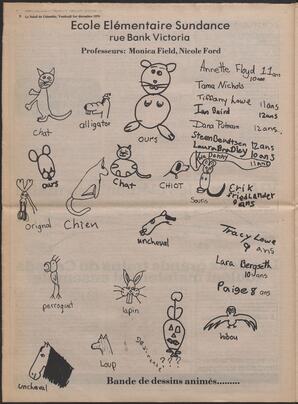 Le Soleil de Colombie, Vendredi 1er décembre 1978
Ecole Elémentaire Sundance
rue Bank Victoria
Professeurs: Monica Field, Nicole Ford
Annette Floyd 11 ans
10 ans
Tama Nichols
Tiffany Lowe 11 ans
Ian Baird 12 ans
Dana Putnam 12 ans.
Steen Bendtsen 12 ans
Laura Bradley 10 ans
11 ans
chat
alligator
ours
ours
chat
CHIOT
Souris
Erik Friedlander
9 ans
orignal
Chien
uncheval
Tracy Lowe
9 ans
Lara Bergseth
10 ans
Paige 8 ans
perroquet
lapin
hibou
uncheval
Loup
Bande de dessins animés.........